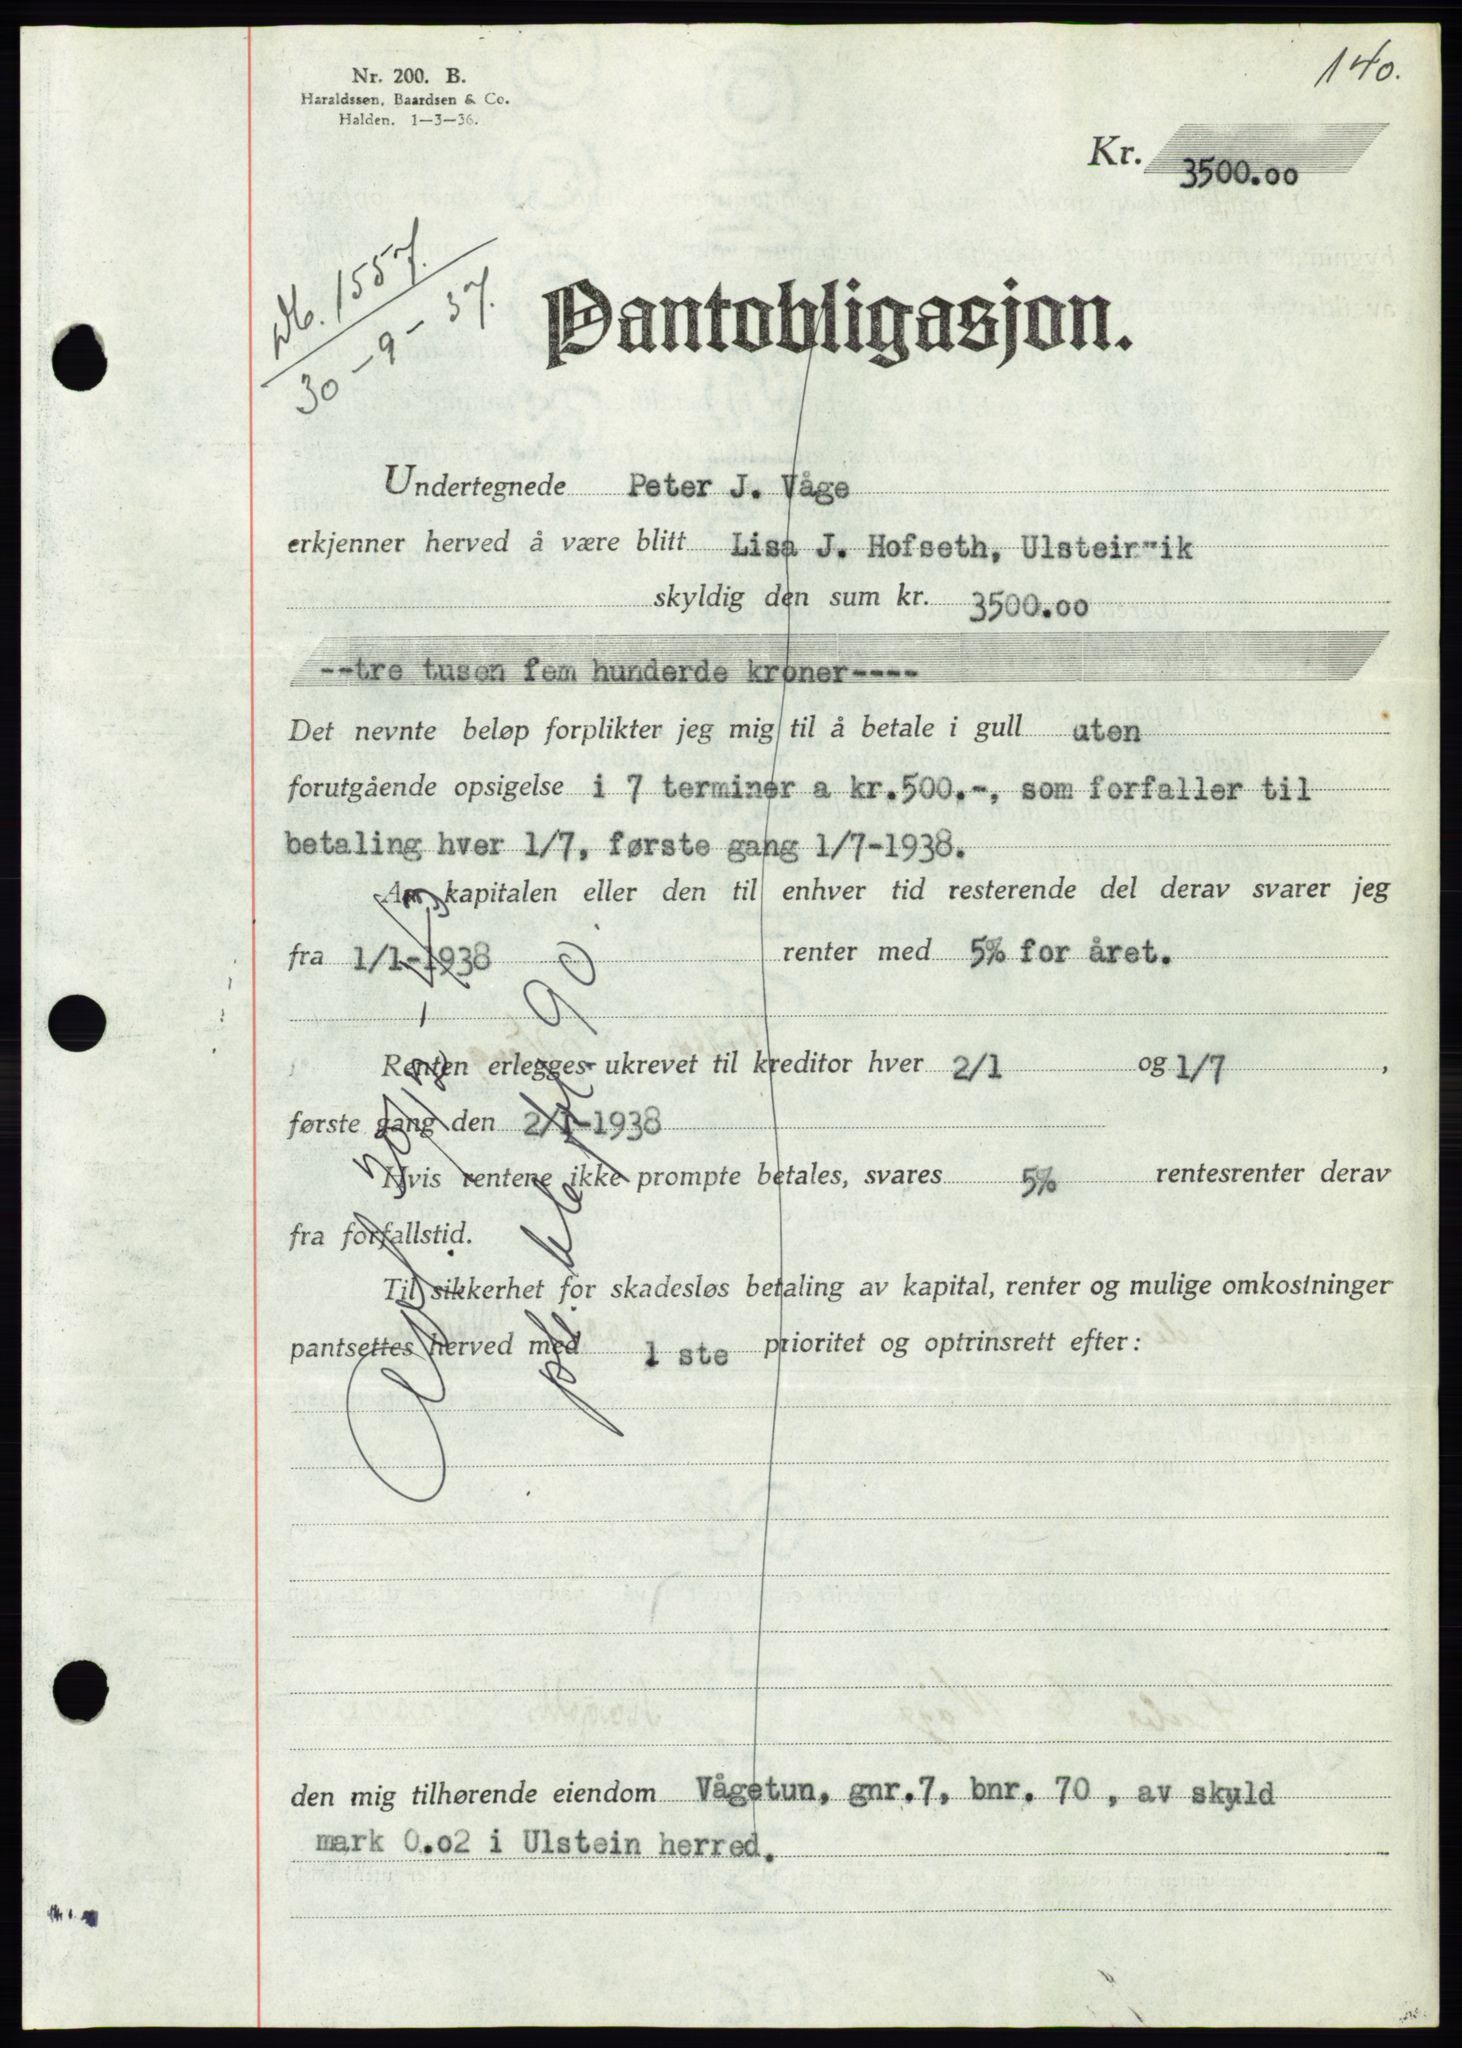 140.
Nr. 200. B.
Haraldssen, Baardsen & Co.
Halden. 1—3—36.
Kr. 3500.00
1557.
30 - 9 - 37.
Pantobligasjon.
Undertegnede Peter J. Våge
erkjenner herved å være blitt Lisa J. Hofseth, Ulsteinvik
skyldig den sum kr. 3500.00
--tre tusen fem hunderde kroner----
Det nevnte beløp forplikter jeg mig til å betale i gull uten
forutgående opsigelse i 7 terminer a kr.500.-, som forfaller til
betaling hver 1/7, første gang 1/7-1938.
Av kapitalen eller den til enhver tid resterende del derav svarer jeg
fra 1/1-1938 renter med 5% for året.
Renten erlegges ukrevet til kreditor hver 2/1 og 1/7,
første gang den 2/1-1938
Hvis rentene ikke prompte betales, svares 5% rentesrenter derav
fra forfallstid.
Til sikkerhet for skadesløs betaling av kapital, renter og mulige omkostninger
pantsettes herved med 1 ste prioritet og optrinsrett efter:
den mig tilhørende eiendom Vågetun, gnr.7, bnr. 70, av skyld
mark 0.02 i Ulstein herred.